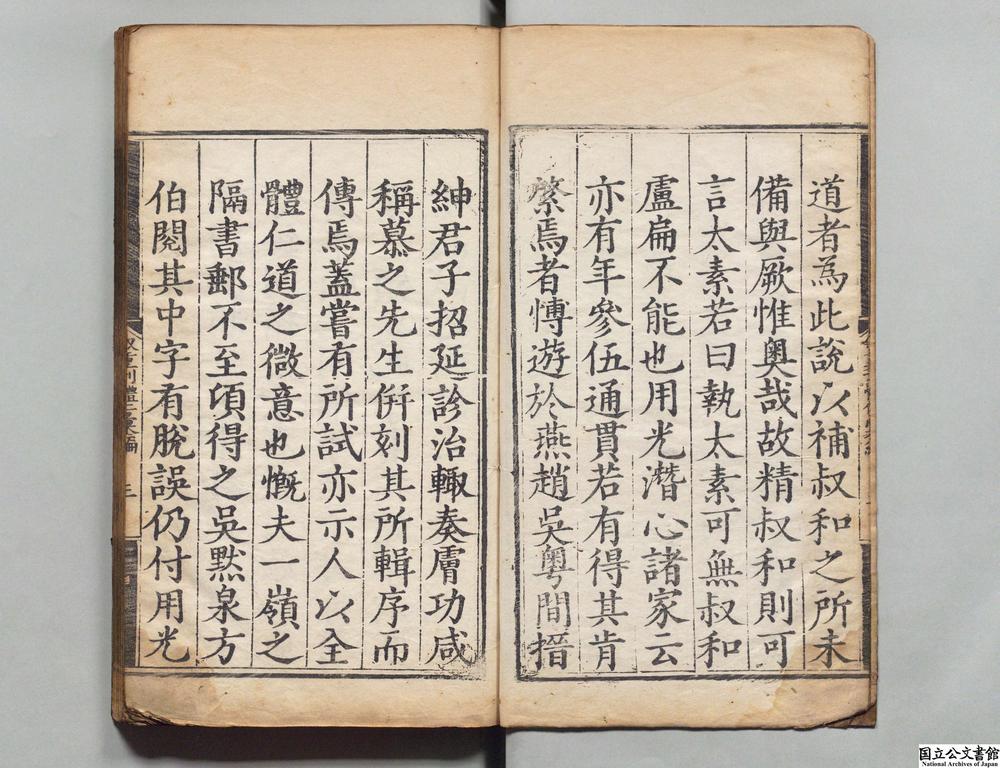 道者為此說以補叔和之所未
備與厥惟奧哉故精叔和則可
言太素若曰執太素可無叔和
盧扁不能也用光潛心諸家云
亦有年參伍通貫若有得其肯
綮焉者慱遊於燕趙吳粤間搢
紳君子招延診治輙奏膚功咸
稱慕之先生倂刻其所輯序而
傳焉蓋嘗有所試亦示人以全
體仁道之微意也慨夫一嶺之
隔書郵不至頃得之吳黙泉方
伯閱其中字有脫誤仍付用光
三
国立公文書館
National Archives of Japan